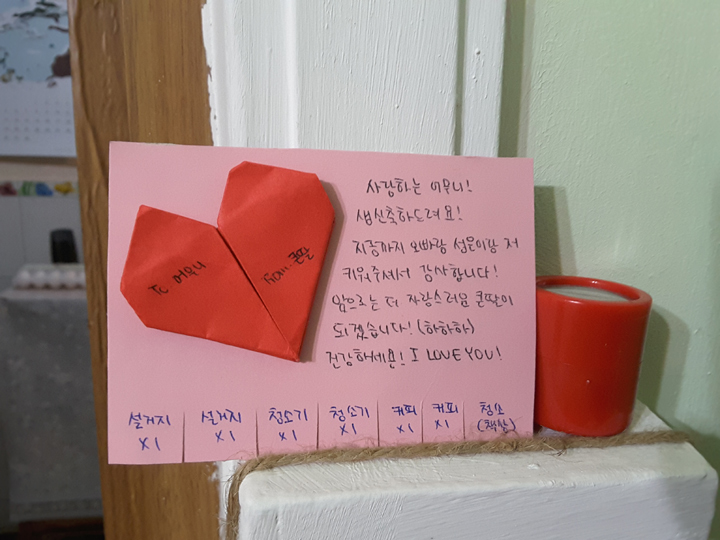 To 어머니
큰딸
사랑하는 어머니!
생신축하드려요!
지금까지 오빠랑 성윤이랑 저
키워주셔서 감사합니다!
앞으로는 더 자랑스러운 큰딸이
되겠습니다! (하하하)
건강하세용! I LOVE YOU!
설거지 X1
설거지 X1
청소기 X1
청소기 X1
커피 X1
커피 X1
청소 (책상)